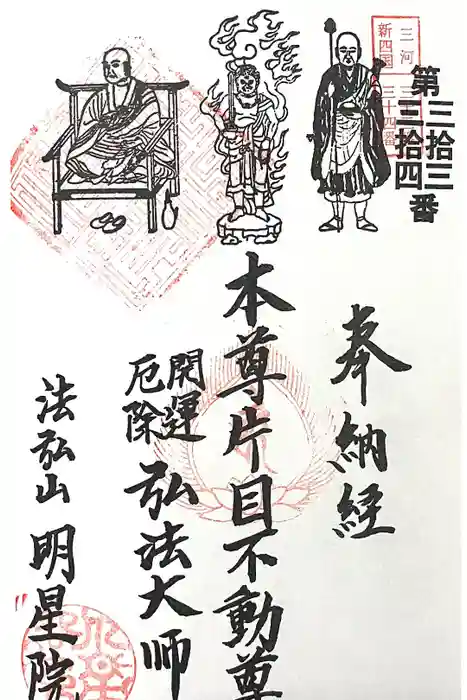 三河新四国
三十三番
三十四番
第三拾三番
三拾四
奉納経
本尊片目不動尊
開運
厄除
弘法大師
法弘山 明星院